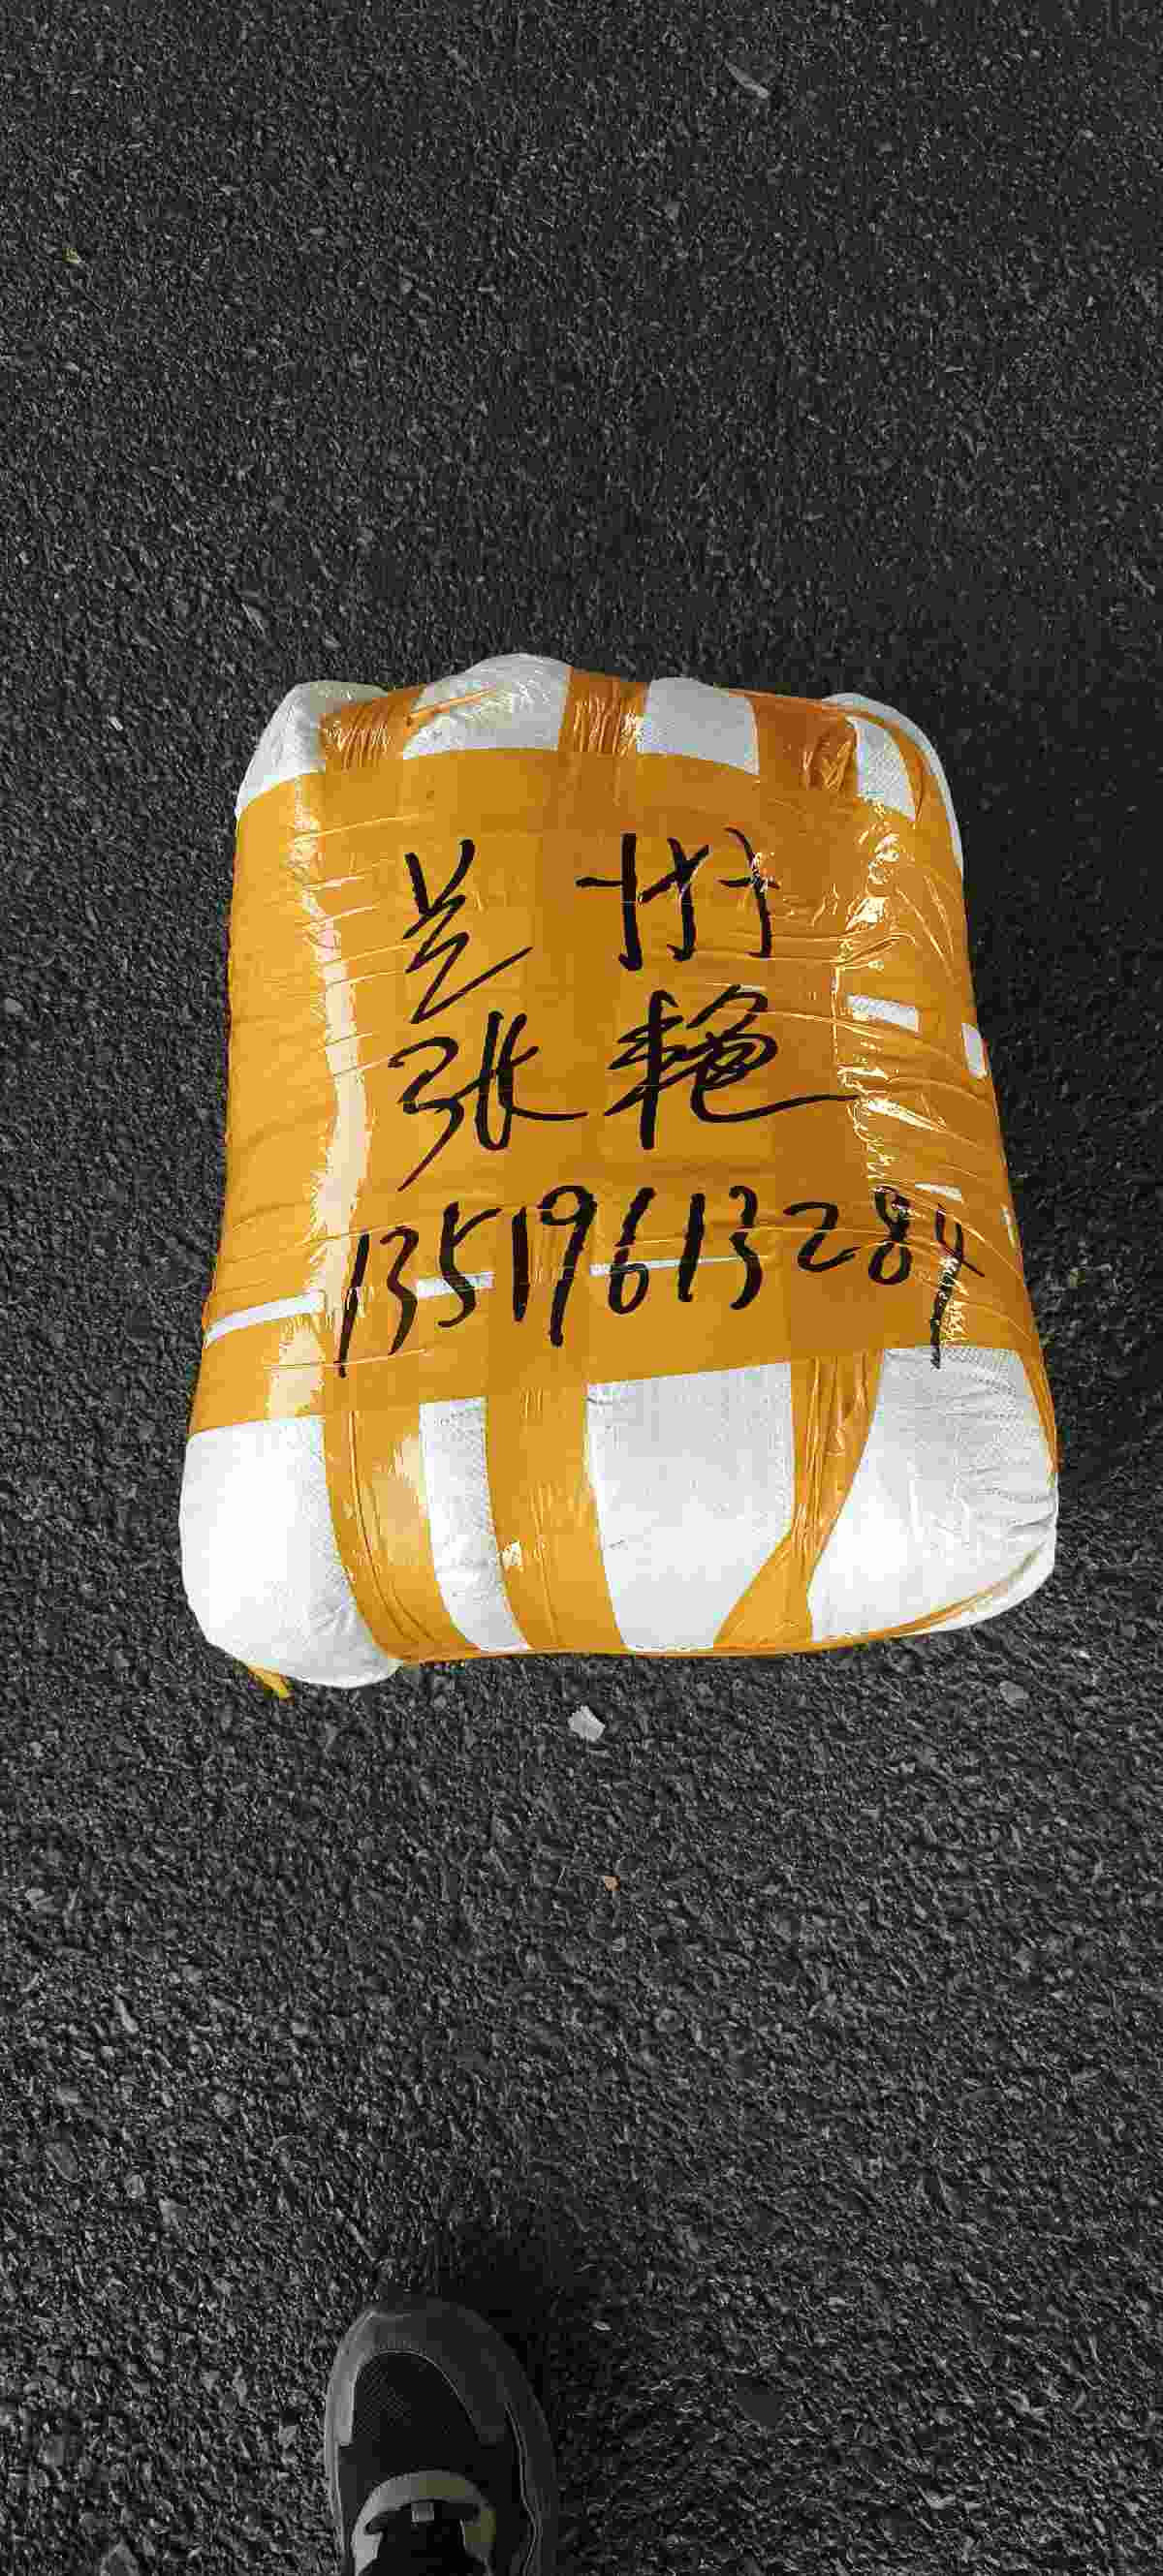 兰州
张艳
13519613284